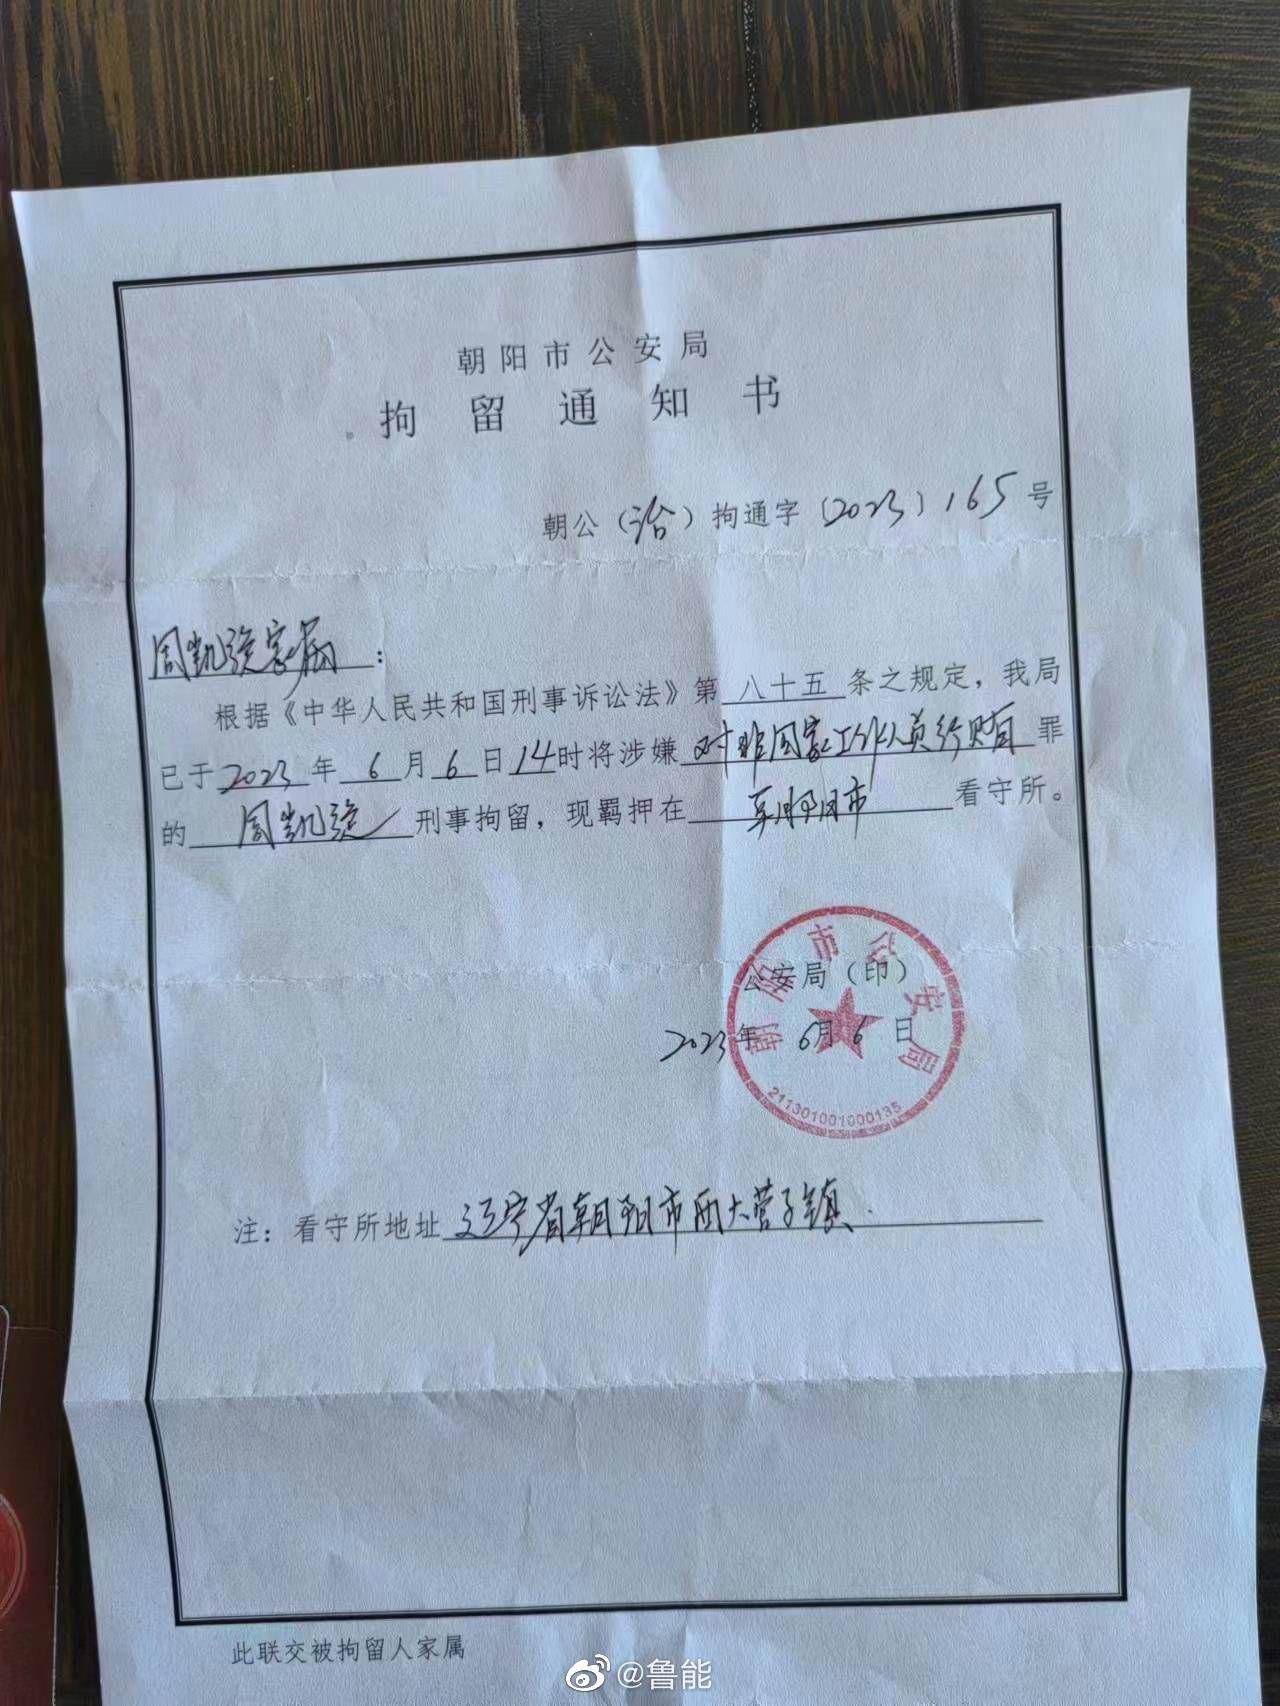 朝阳市公安局
拘留通知书
朝公(治)拘通字〔2023〕165号
周凯旋家属:
根据《中华人民共和国刑事诉讼法》第八十五条之规定，我局
已于2023年6月6日14时将涉嫌对非国家工作人员行贿罪
的周凯旋刑事拘留，现羁押在朝阳市看守所。
朝阳市公安局
公安局(印)
2023年6月6日
211301001000135
注：看守所地址辽宁省朝阳市西大营子镇.
此联交被拘留人家属
@鲁能